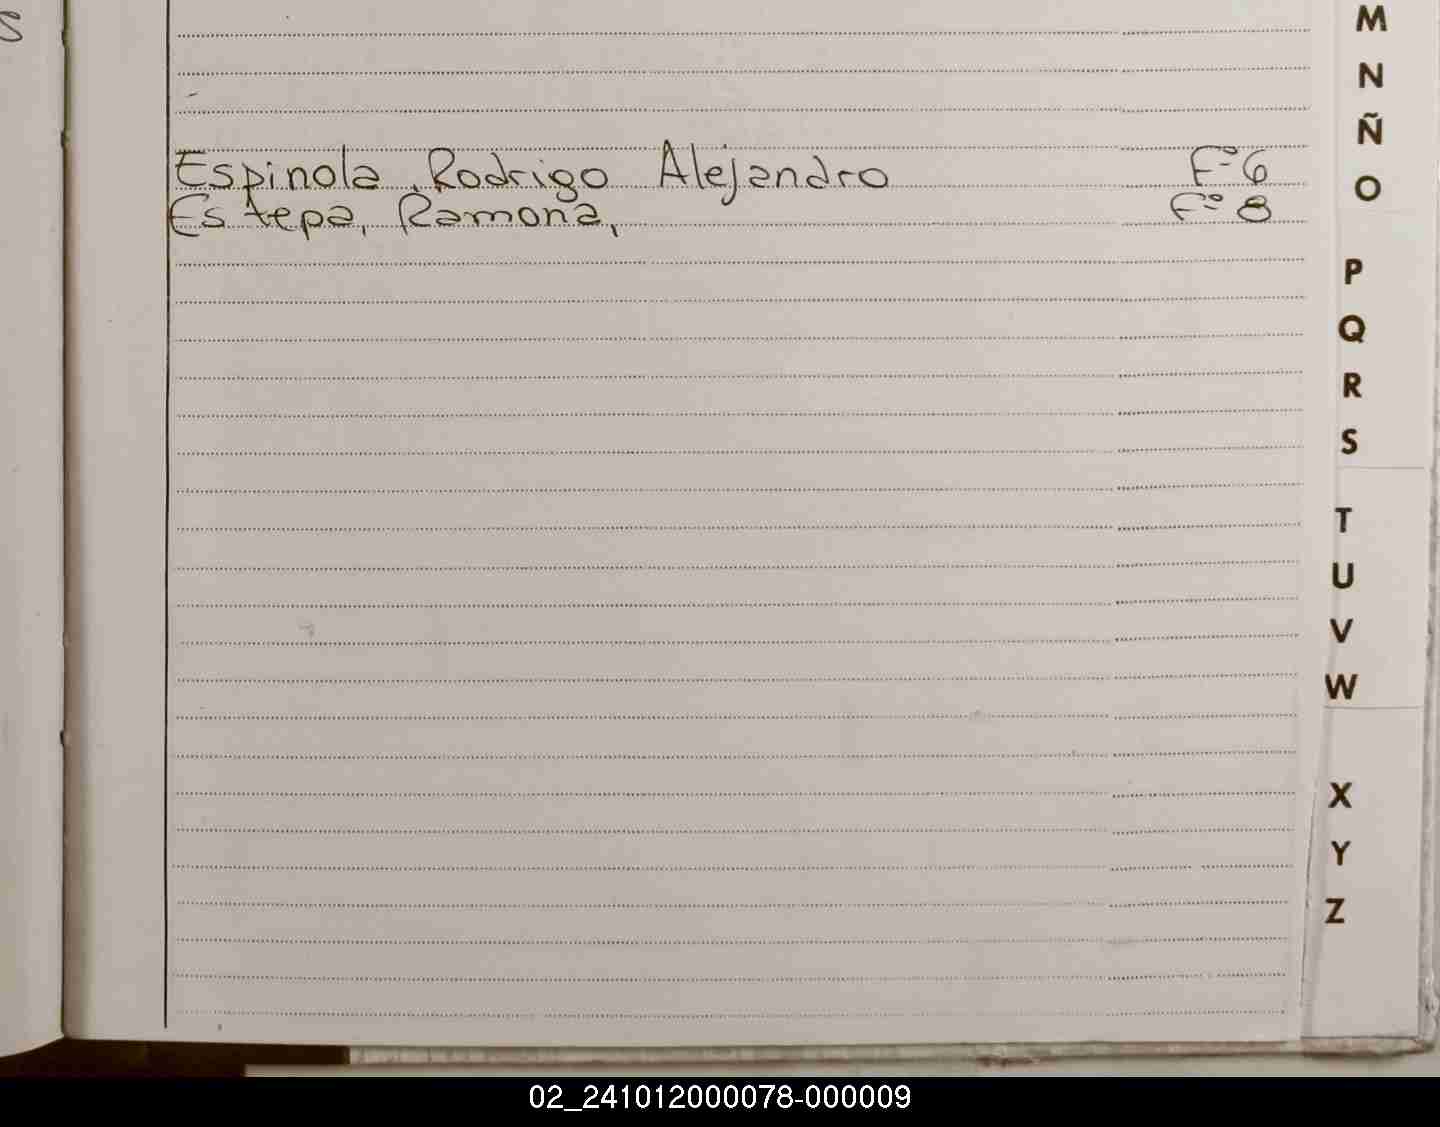 S
Espinola, Rodrigo Alejandro Fº6
Estepa, Ramona, Fº 8
M
N
Ñ
O
P
Q
R
S
T
U
V
W
X
Y
Z
02_241012000078-000009